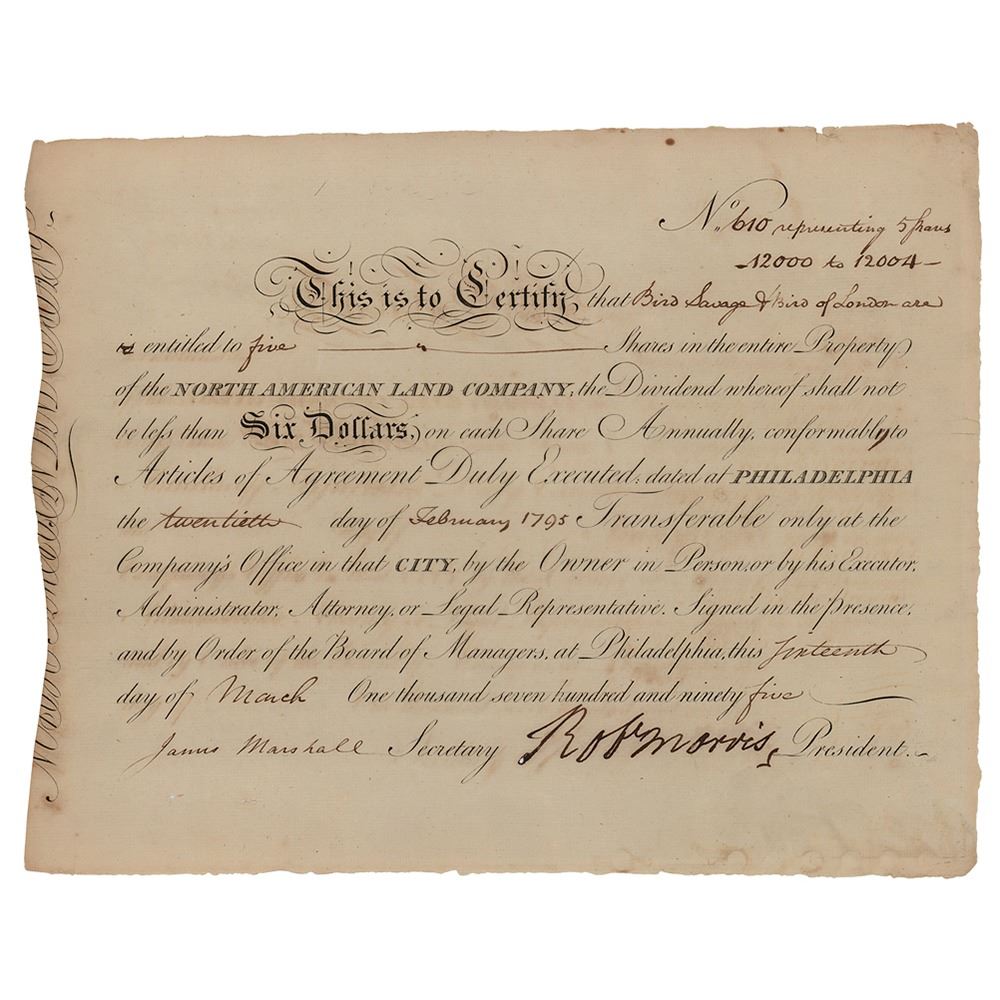 No. 610 representing 5 shares
-12000 to 12004-
This is to Certify, that Bird Savage & Bird of London are
is entitled to five Shares in the entire Property
of the NORTH AMERICAN LAND COMPANY; the Dividend whereof shall not
be less than Six Dollars, on each Share Annually, conformably to
Articles of Agreement Duly Executed; dated at PHILADELPHIA
the twentieth day of February 1795 Transferable only at the
Company's Office in that CITY, by the Owner in Person, or by his Executor,
Administrator, Attorney, or Legal Representative. Signed in the presence,
and by Order of the Board of Managers, at Philadelphia, this sixteenth
day of March One thousand seven hundred and ninety five
James Marshall Secretary Robt Morris, President.